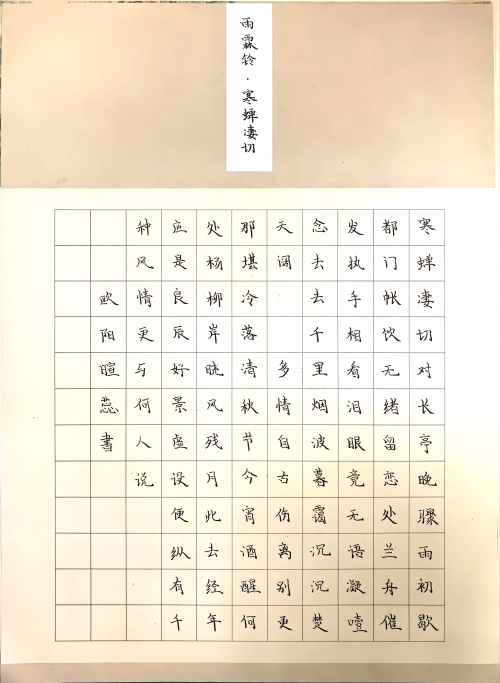 雨霖铃·寒蝉凄切
寒蝉凄切对长亭晚骤雨初歇
都门帐饮无绪留恋处兰舟催
发执手相看泪眼竟无语凝噎
念去去千里烟波暮霭沉沉楚
天阔 多情自古伤离别更
那堪冷落清秋节今宵酒醒何
处杨柳岸晓风残月此去经年
应是良辰好景虚设便纵有千
种风情更与何人说
欧阳暄蕊書